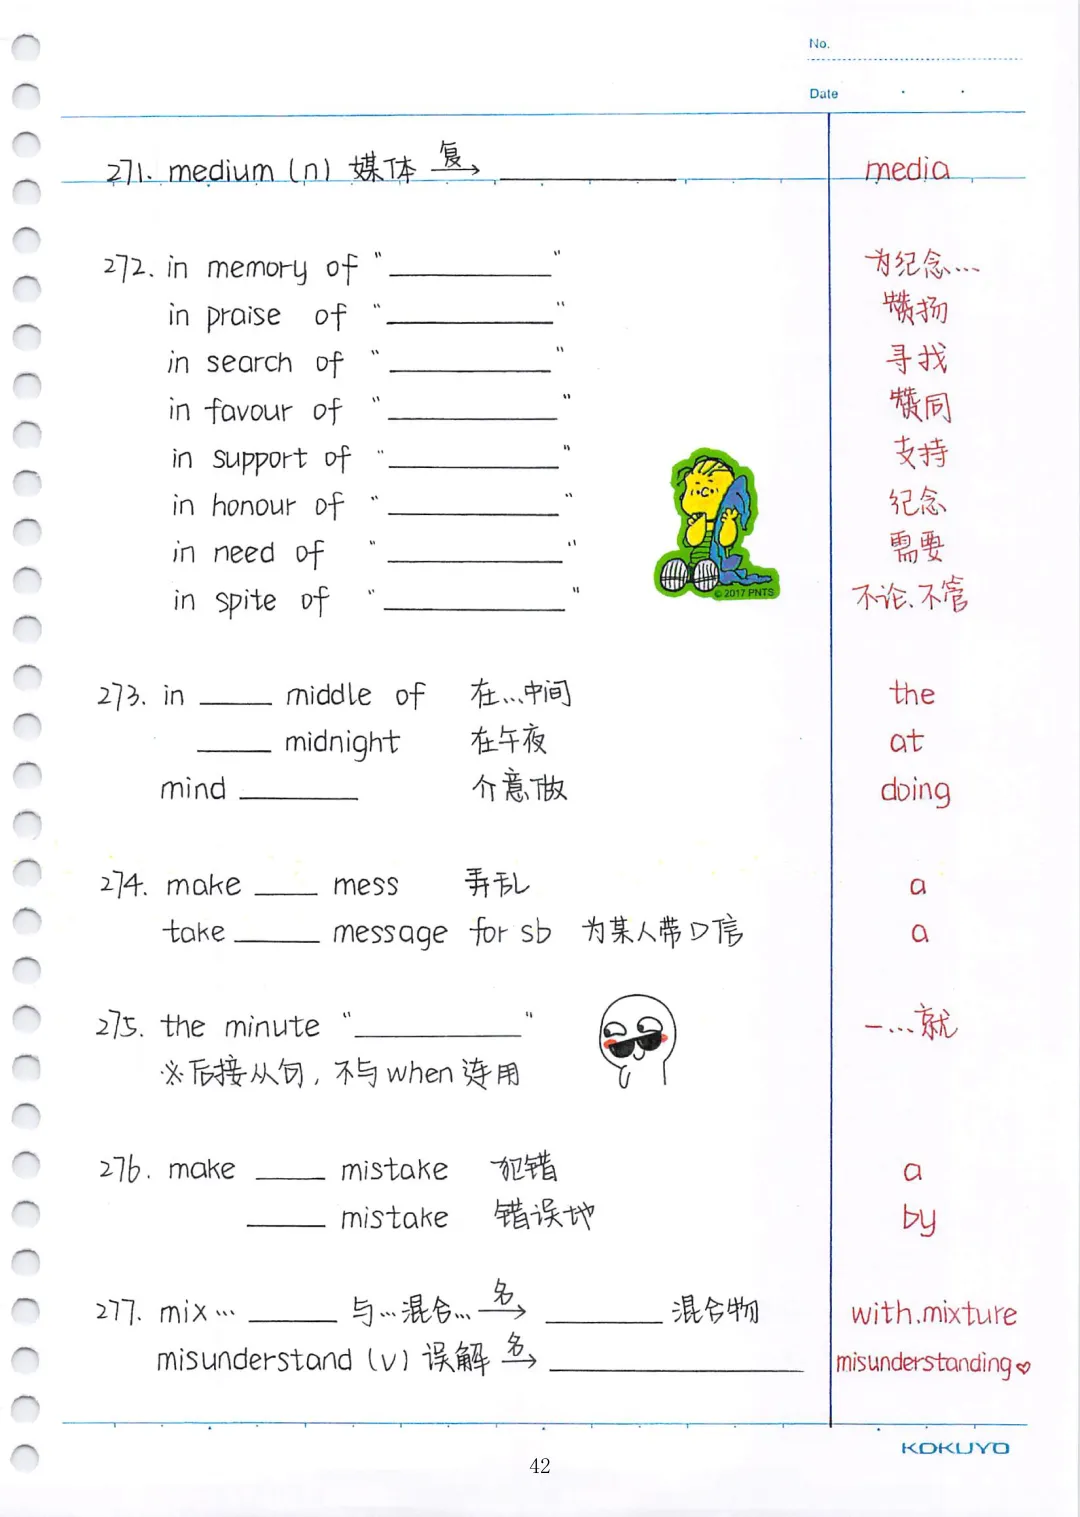 No.
Date
271. medium (n) 媒体 复→ ________ media
272. in memory of "________" 为纪念...
in praise of "________" 赞扬
in search of "________" 寻找
in favour of "________" 赞同
in support of "________" 支持
in honour of "________" 纪念
in need of "________" 需要
in spite of "________" 不论、不管
© 2017 PNTS
273. in ____ middle of 在...中间 the
____ midnight 在午夜 at
mind ______ 介意做 doing
274. make ____ mess 弄乱 a
take ____ message for sb 为某人带口信 a
275. the minute "________" 一...就
※后接从句, 不与when连用
276. make ____ mistake 犯错 a
____ mistake 错误地 by
277. mix... ____ 与...混合... 名→ ______ 混合物 with.mixture
misunderstand (v) 误解 名→ ____________ misunderstanding♡
KOKUYO
42